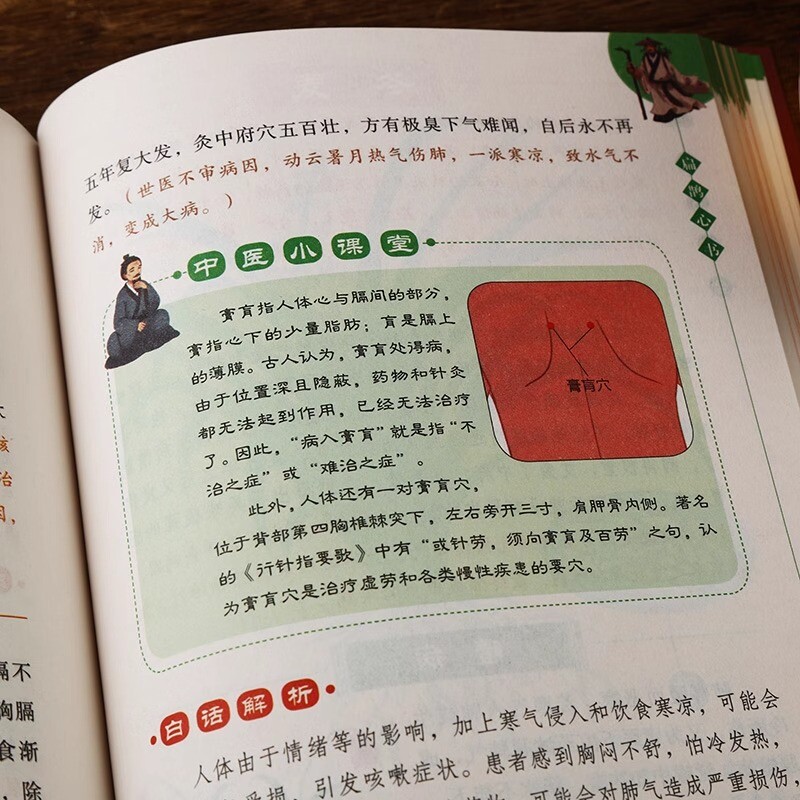 五年复大发，灸中府穴五百壮，方有极臭下气难闻，自后永不再
发。（世医不审病因，动云暑月热气伤肺，一派寒凉，致水气不
消，变成大病。）
扁鹊心书
中医小课堂
膏肓指人体心与膈间的部分，
膏指心下的少量脂肪；肓是膈上
的薄膜。古人认为，膏肓处得病，
由于位置深且隐蔽，药物和针灸
都无法起到作用，已经无法治疗
了。因此，“病入膏肓”就是指“不
治之症”或“难治之症”。
膏肓穴
此外，人体还有一对膏肓穴，
位于背部第四胸椎棘突下，左右旁开三寸，肩胛骨内侧。著名
的《行针指要歌》中有“或针劳，须向膏肓及百劳”之句，认
为膏肓穴是治疗虚劳和各类慢性疾患的要穴。
白话解析
人体由于情绪等的影响，加上寒气侵入和饮食寒凉，可能会
受损，引发咳嗽症状。患者感到胸闷不舒，怕冷发热，
可能会对肺气造成严重损伤，
治
因，
膈不
胸膈
食渐
，除